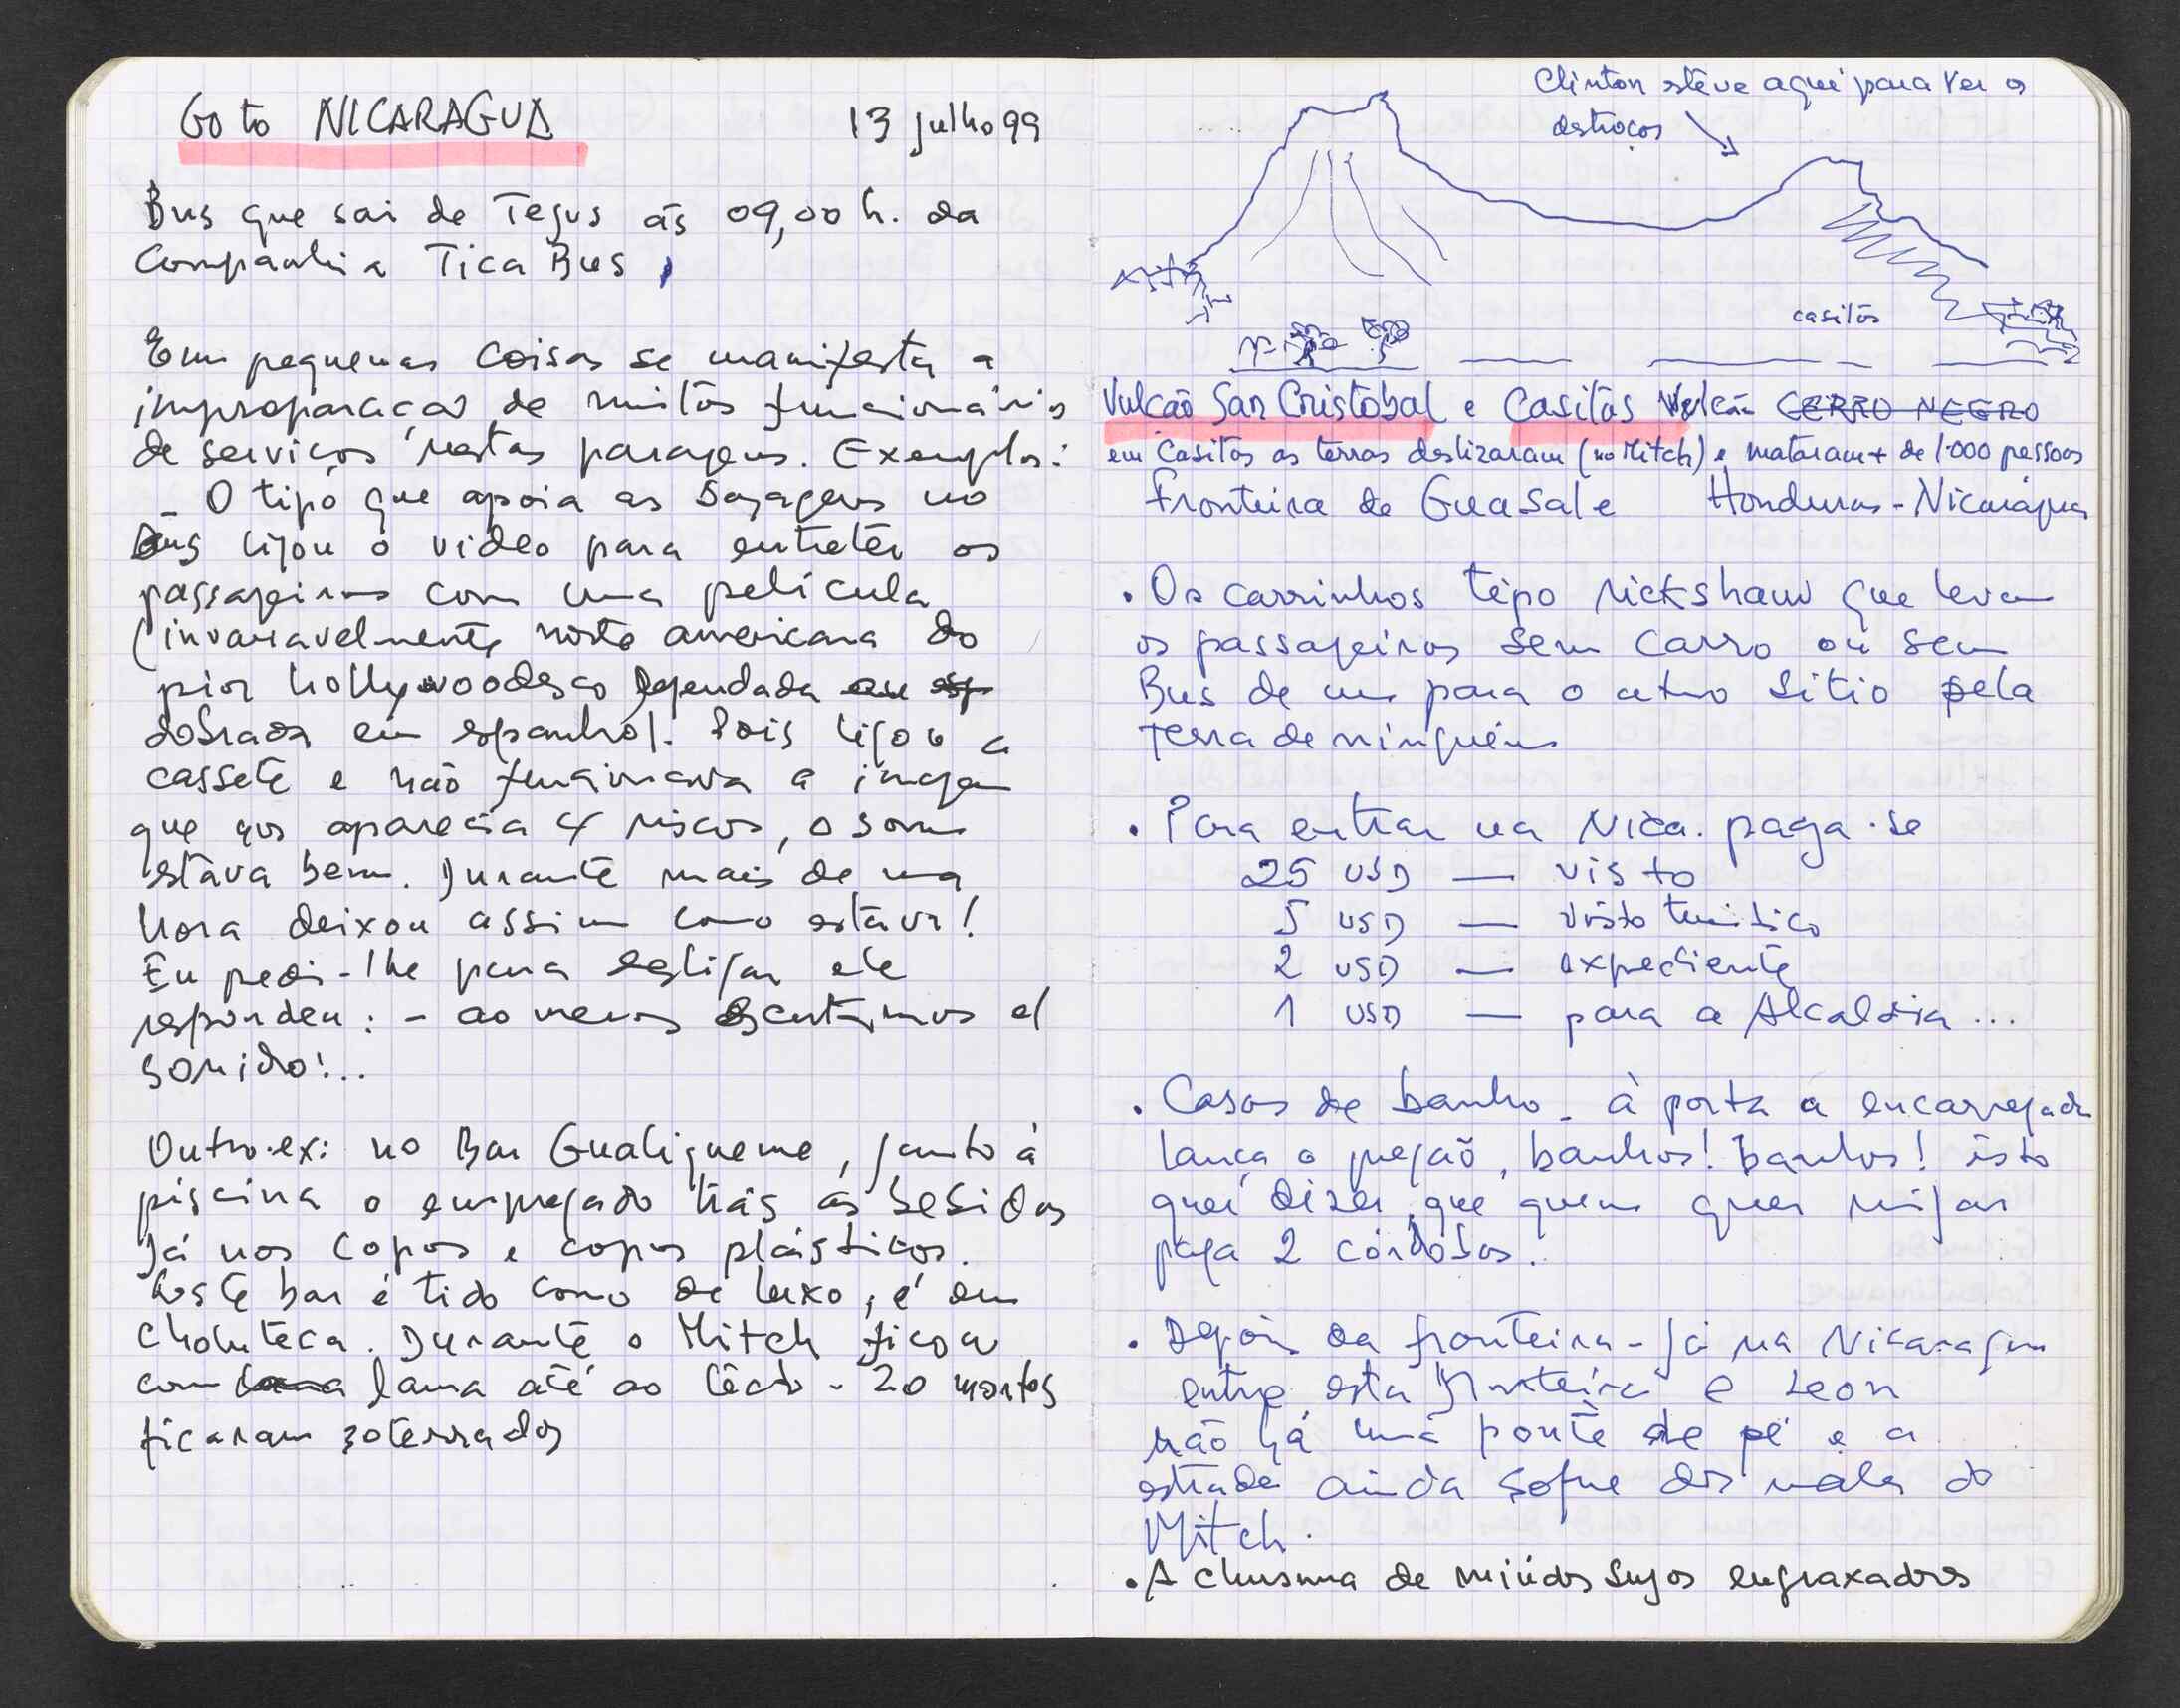 Go to NICARAGUA 13 julho 99
Bus que sai de Tegus às 09,00 h. da
Companhia Tica Bus,
Em pequenas coisas se manifesta a
impreparação de muitos funcionários
de serviços nestas paragens. Exemplos:
- O tipo que apoia as bagagens no
Bus ligou o video para entreter os
passageiros com uma película
(invariavelmente norte americana do
pior hollywoodesco legendada em esp
dobrada em espanhol. Pois ligou a
cassete e não funcionava a imagem
que nos aparecia c/ riscos, o som
estava bem. Durante mais de uma
hora deixou assim como estava!
Eu pedi-lhe para desligar ele
respondeu: - ao menos escutamos el
sonido!..
Outro ex: no Bar Gualiqueme, junto à
piscina o empregado trás as bebidas
Já nos copos e copos plásticos.
Este bar é tido como de luxo, é em
Choluteca. Durante o Mitch ficou
com lama lama até ao técto - 20 mortos
ficaram soterrados
Clinton esteve aqui para ver os
destroços
casitãs
Vulcão San Cristobal e Casitãs Vulcão CERRO NEGRO
em Casitãs as terras deslizaram (no Mitch) e mataram + de 1.000 pessoas
Fronteira de Guasale Honduras - Nicarágua
. Os carrinhos tipo rickshaw que levam
os passageiros sem carro ou sem
Bus de um para o outro sitio pela
terra de ninguém
. Para entrar na Nica. paga-se
25 USD — visto
5 USD — visto turistico
2 USD — expediente
1 USD — para a Alcaldia ...
. Casas de banho - à porta a encarregada
lança o pregão, banhos! banhos! isto
quer dizer que quem quer mijar
paga 2 córdobas.
. Depois da fronteira - Já na Nicaragua
entre esta fronteira e Leon
não há uma ponte de pé e a
estrada ainda sofre dos males do
Mitch.
. A chusma de miúdos sujos engraxadores